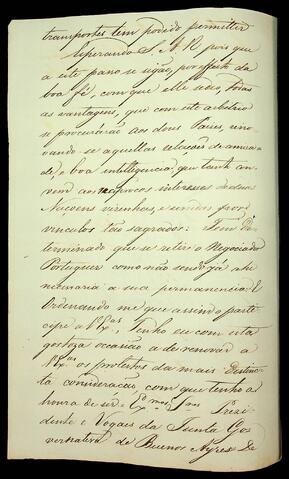 transportes tem podido permittir
Esperando S. A. R. pois que
a este passo se sigão, por effeito da
boa fé, com que elle he dado, todas
as vantagens, que com este arbitrio
se procurárão aos dous Paizes, reno
vando-se aquellas relações de amiza
de, e boa intelligencia, que tanto con
vem aos reciprocos interesses de duas
Naçoens visinhas, e unidas por
vinculos tão sagrados: Tem De
terminado que se retire o Negociador
Portuguez como não sendo já ahi
necessaria a sua permanencia. E
Ordenando me que assim o parte
cipe a VExas, tenho eu com esta
gostoza occazião a de renovar a
VExas os protestos da mais distinc
ta consideracão com que tenho a
honra de sêr = Exmos Snres Prezi
dente e Vogais da Junta Gov
vernativa de Buenos Ayres De